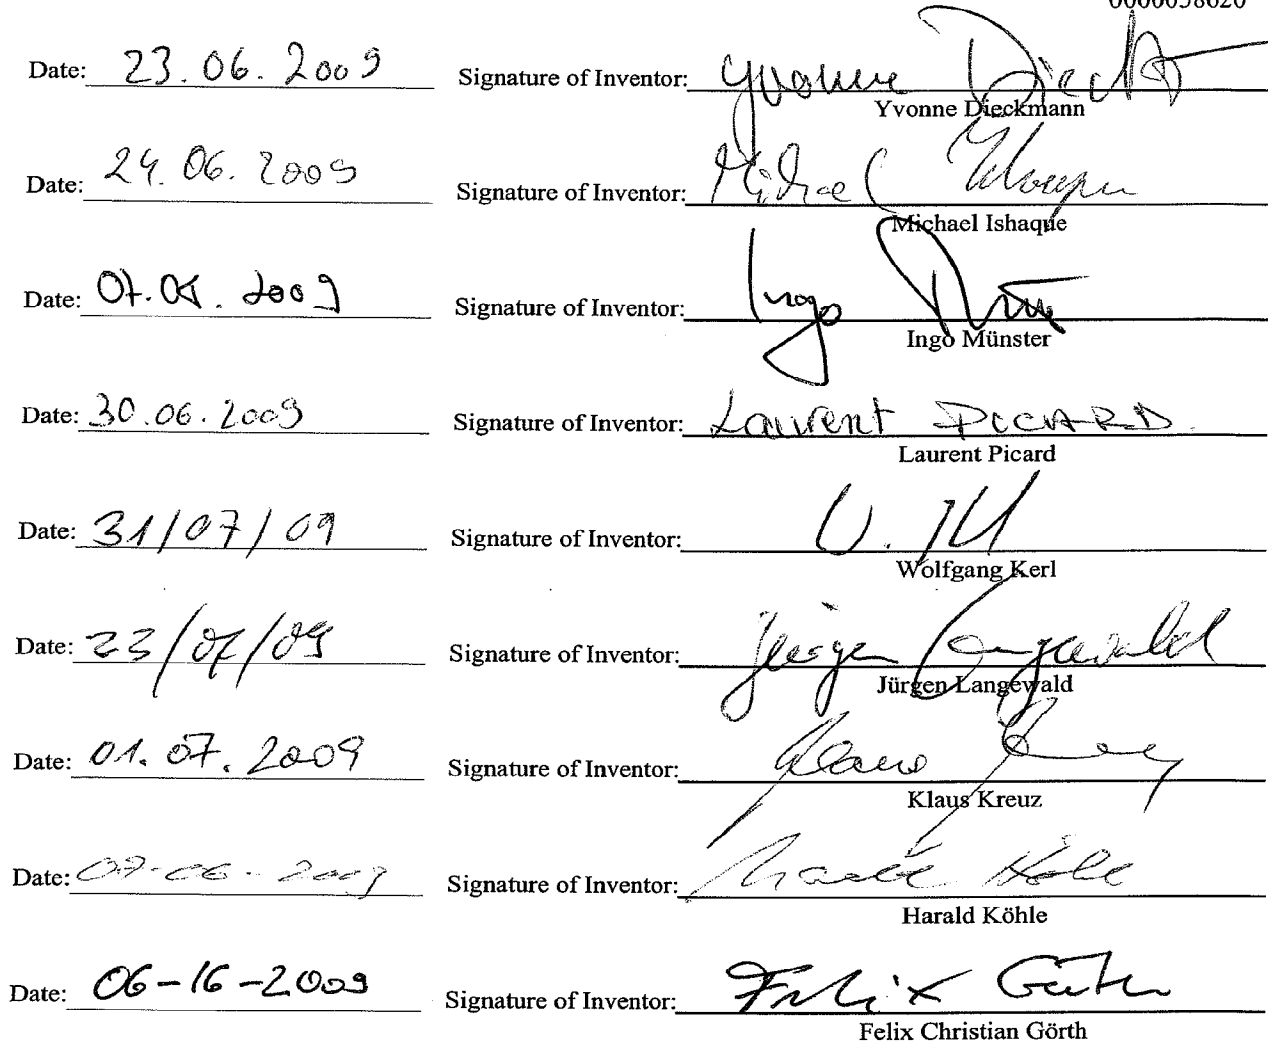 Date: 23.06.2009 Signature of Inventor: Yvonne Dieckm
Yvonne Dieckmann
Date: 24.06.2009 Signature of Inventor: Michael Ishaque
Michael Ishaque
Date: Signature of Inventor: Ingo
Ingo Münster
Date: 30.06.2009 Signature of Inventor: Laurent PICARD
Laurent Picard
Date: 31/07/09 Signature of Inventor:
Wolfgang Kerl
Date: 23/07/09 Signature of Inventor: Jürgen Langewald
Jürgen Langewald
Date: 01.07.2009 Signature of Inventor: Klaus
Klaus Kreuz
Date: Signature of Inventor:
Harald Köhle
Date: 06-16-2009 Signature of Inventor: Felix
Felix Christian Görth